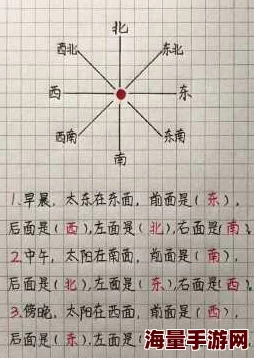 北
西北 东北
西 东
西南 东南
南
1.早晨，太东在东面，前面是(东)，
后面是(西),左面是(北),右面是(南)。
2.中午，太阳在南面，前面是(南)，
后面是(北),左面是(东),右面是(西)
3.傍晚，太阳在西面，前面是(西)，
后面是(东),左面是(
海量手游网